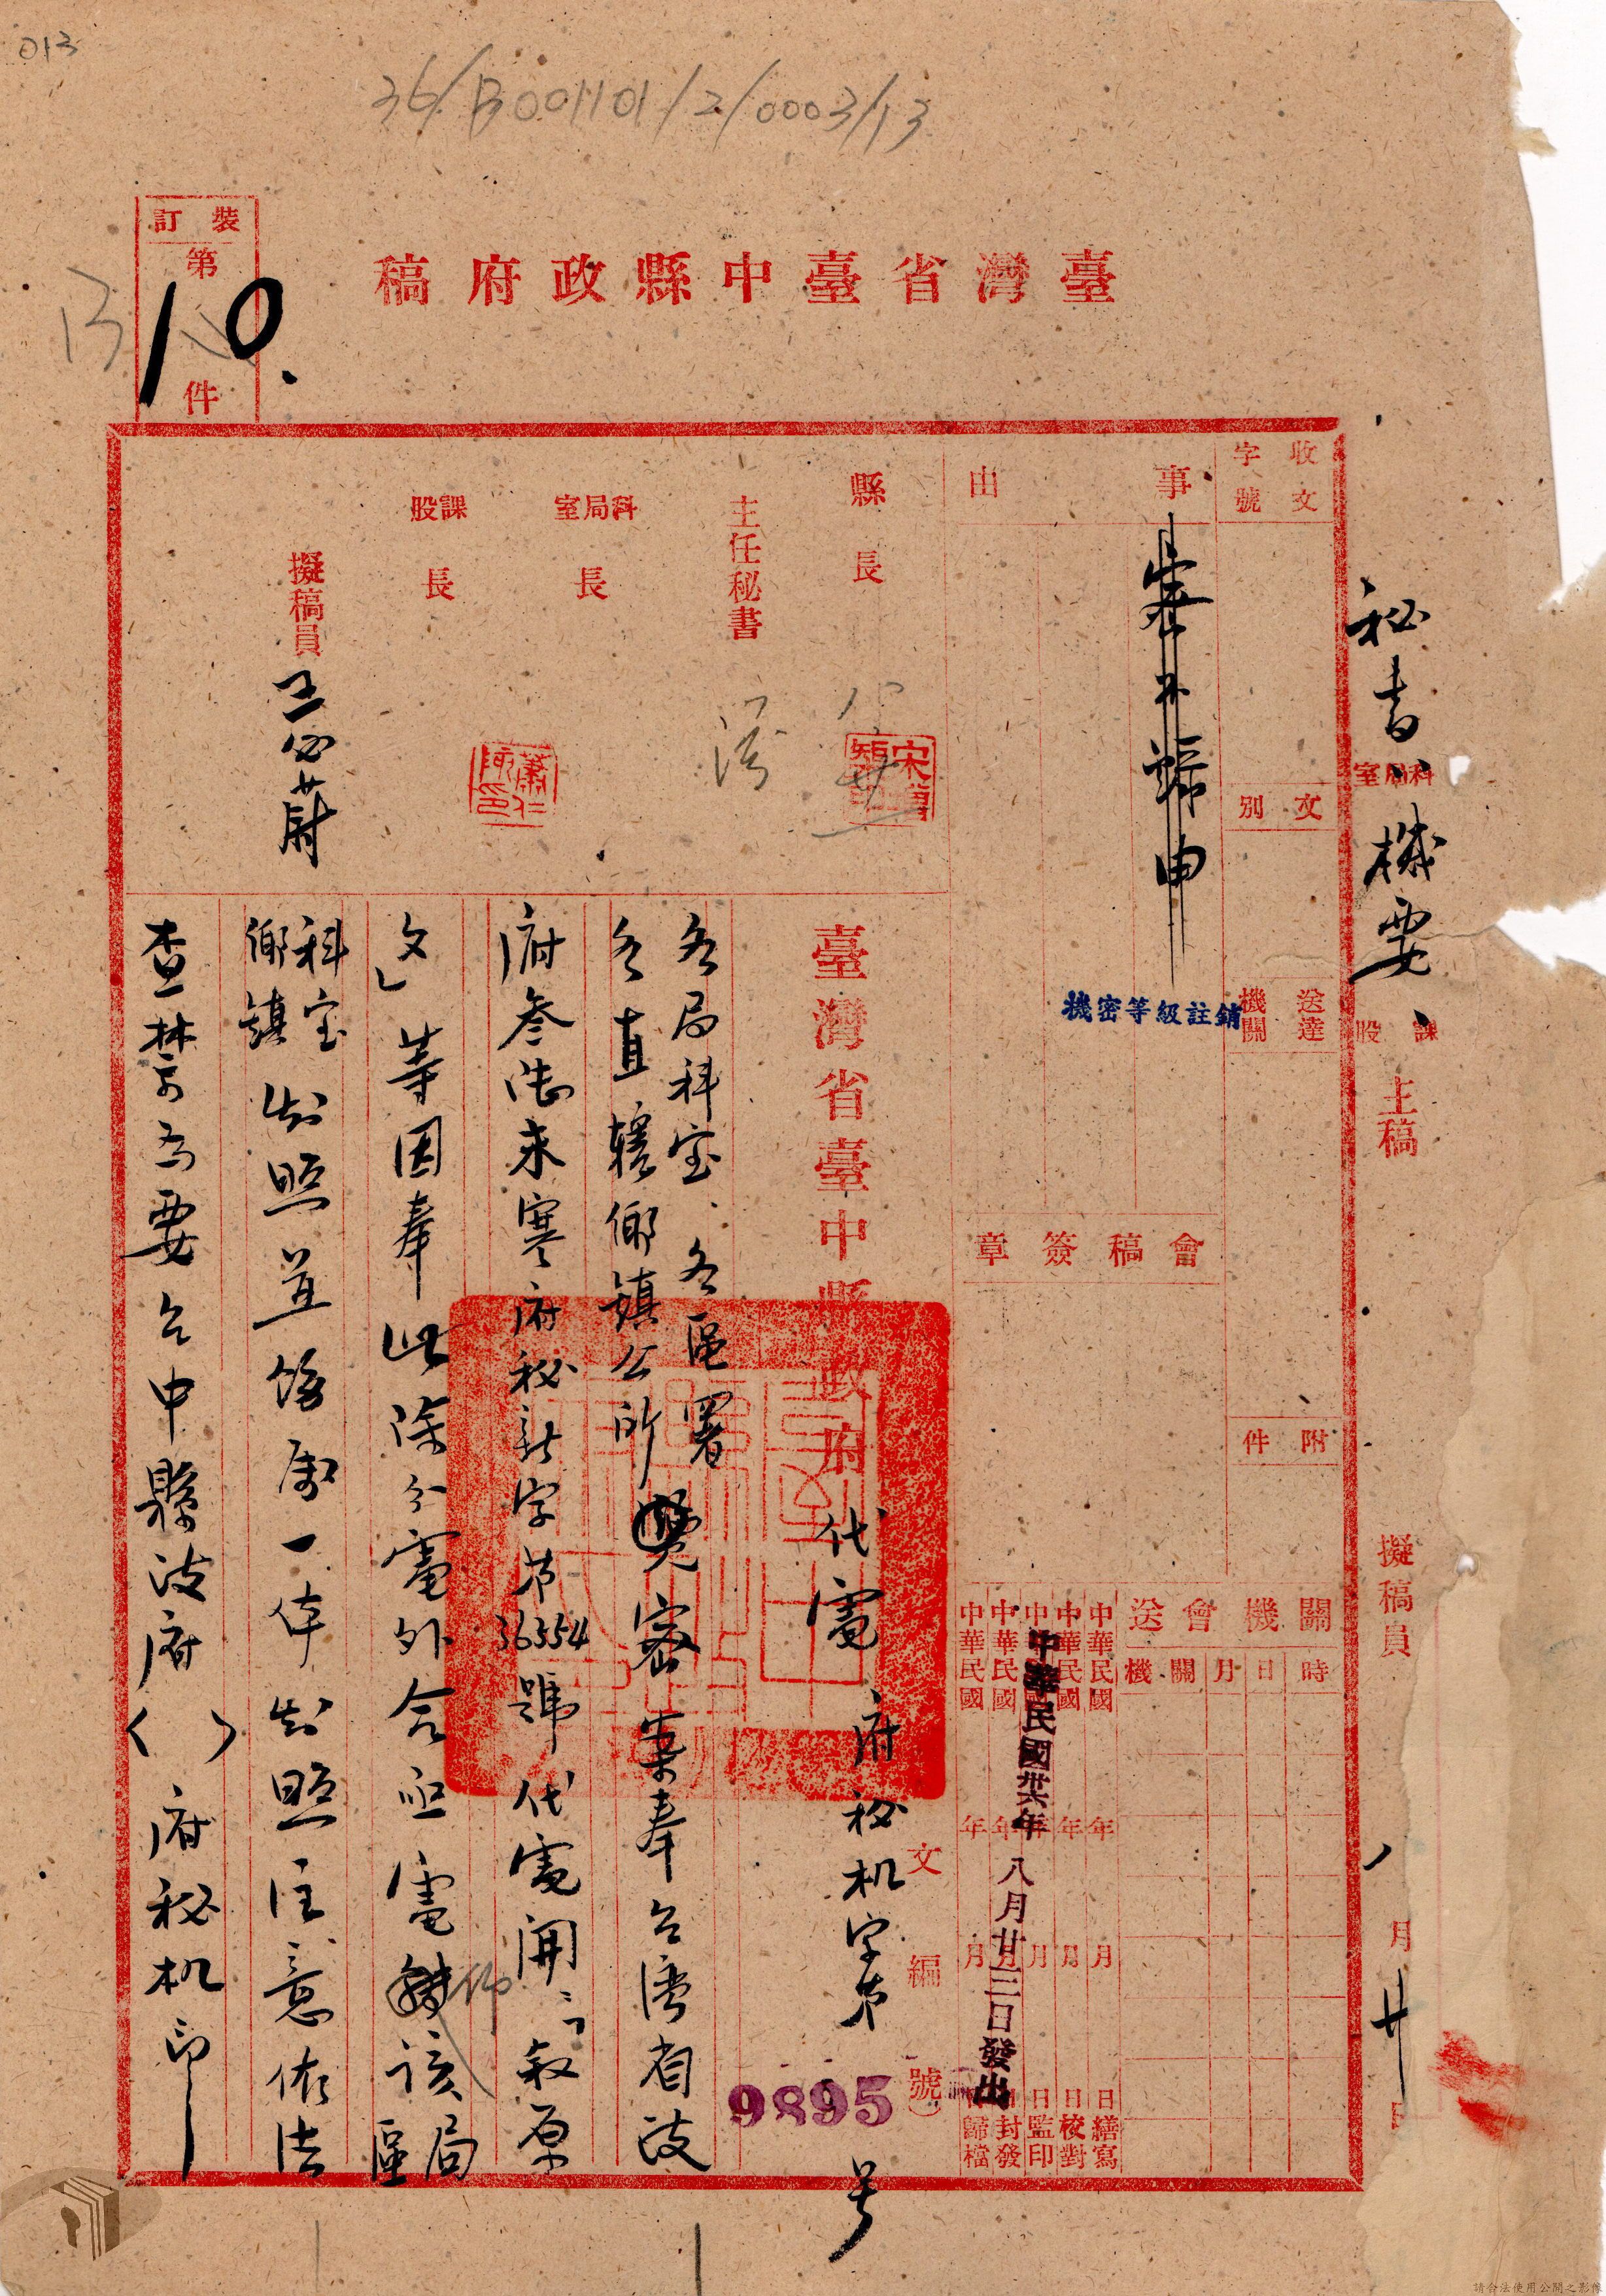 013
36/B001101/2/0003/13
裝訂
第
10.
件
13
臺灣省臺中縣政府稿
秘書
科局室
機要
課股
主稿
擬稿員
八月廿日
收文
字號
文別
送達
機關
附件
事由
機密等級註銷
會稿簽章
關機會送
時日月關機
中華民國年月日繕寫
中華民國年月日校對
中華民國年月日監印
中華民國年月日封發
中華民國年月日歸檔
中華民國卅六年八月廿三日發出
縣長
主任秘書
科局室長
課股長
擬稿員
王必蔚
蕭仁
文編號
臺灣省臺中縣政府代電 府秘机字第9895号
各局科室、各區署
各直轄鄉鎮公所 密案奉台灣省政
府叁陆未寒府秘訢字第36554號代電開：「敘原
文」等因奉此除分電外合亟電仰該局區
科室鄉鎮知照並飭属一体知照注意依法
查禁為要台中縣政府（ ）府秘机印
請合法使用公開之影像